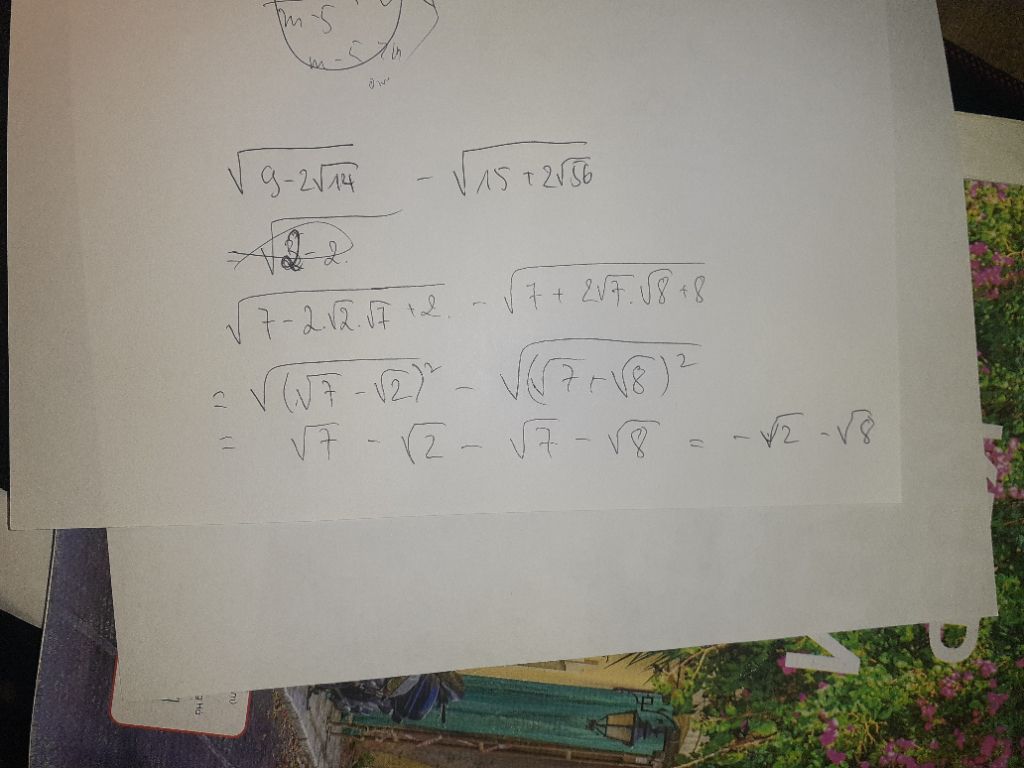 m-5
m-5
√(9-2√14) - √(15+2√56)
√(7-2.√2.√7+2. - √(7+2√7.√8+8)
= √((√7-√2)²) - √((√7+√8)²)
= √7 - √2 - √7 - √8 = -√2 - √8